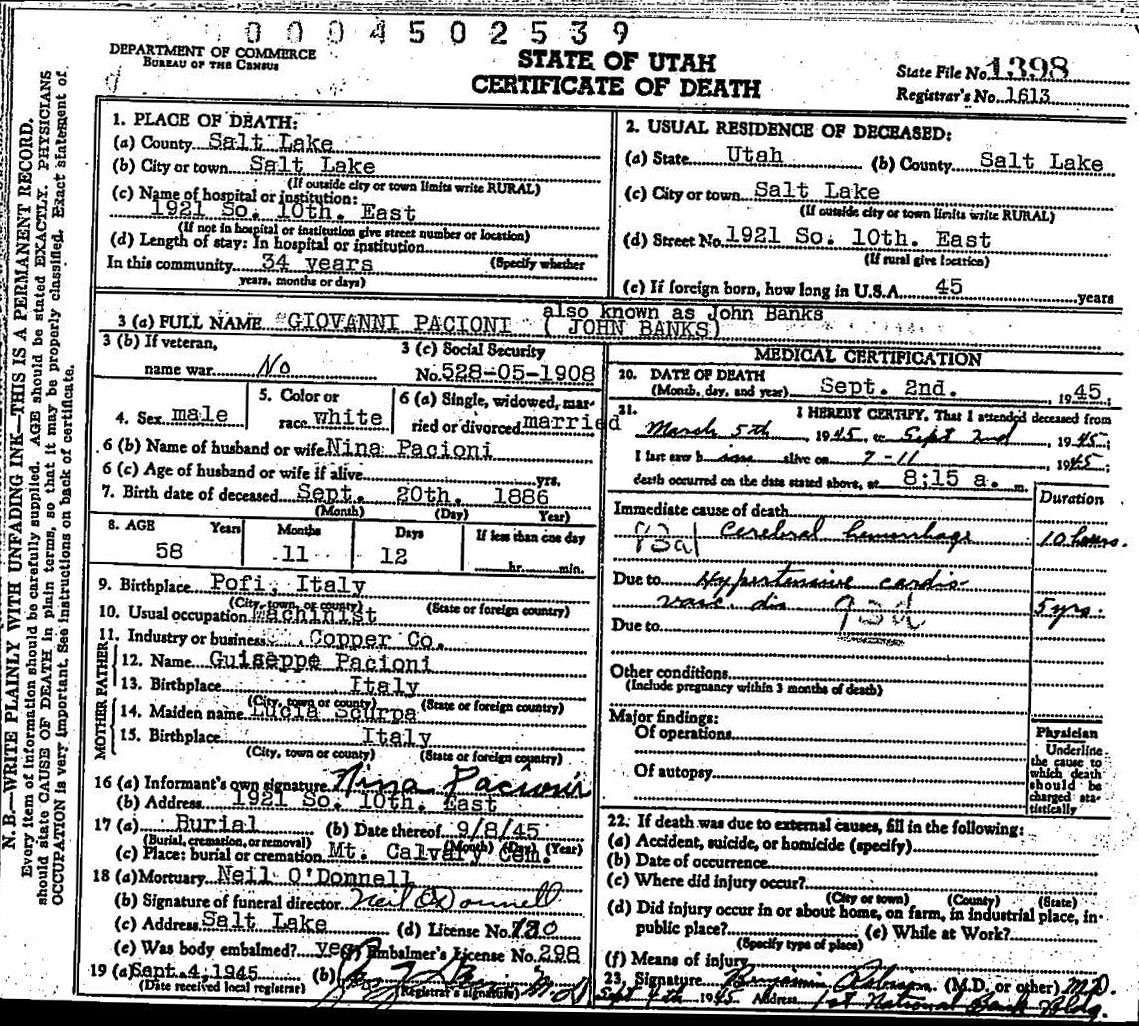 0004502539
DEPARTMENT OF COMMERCE
BUREAU OF THE CENSUS
STATE OF UTAH
CERTIFICATE OF DEATH
State File No. 1398
Registrar's No. 1613
N.B.—WRITE PLAINLY WITH UNFADING INK—THIS IS A PERMANENT RECORD.
Every item of information should be carefully supplied. AGE should be stated EXACTLY. PHYSICIANS
should state CAUSE OF DEATH in plain terms, so that it may be properly classified. Exact statement of
OCCUPATION is very important. See instructions on back of certificate.
1. PLACE OF DEATH:
(a) County Salt Lake
(b) City or town Salt Lake
(If outside city or town limits write RURAL)
(c) Name of hospital or institution:
1921 So. 10th. East
(If not in hospital or institution give street number or location)
(d) Length of stay: In hospital or institution
In this community 34 years (Specify whether
years, months or days)
2. USUAL RESIDENCE OF DECEASED:
(a) State Utah (b) County Salt Lake
(c) City or town Salt Lake
(If outside city or town limits write RURAL)
(d) Street No. 1921 So. 10th. East
(If rural give location)
(e) If foreign born, how long in U.S.A. 45 years
also known as John Banks
3 (a) FULL NAME GIOVANNI PACIONI ( JOHN BANKS)
3 (b) If veteran,
name war No
3 (c) Social Security
No. 528-05-1908
4. Sex male
5. Color or
race white
6 (a) Single, widowed, mar-
ried or divorced married
6 (b) Name of husband or wife Nina Pacioni
6 (c) Age of husband or wife if alive yrs.
7. Birth date of deceased Sept. 20th. 1886
(Month) (Day) Year)
8. AGE Years Months Days If less than one day
58 11 12 hr. min.
9. Birthplace Pofi, Italy
(City, town, or county) (State or foreign country)
10. Usual occupation Machinist
11. Industry or business Copper Co.
FATHER
12. Name Guiseppe Pacioni
13. Birthplace Italy
(City, town or county) (State or foreign country)
MOTHER
14. Maiden name Lucia Scurpa
15. Birthplace Italy
(City, town or county) (State or foreign country)
16 (a) Informant's own signature Nina Pacioni
(b) Address 1921 So. 10th. East
17 (a) Burial (b) Date thereof 9/8/45
(Burial, cremation, or removal) (Month) (Day) (Year)
(c) Place: burial or cremation Mt. Calvary Cem.
18 (a) Mortuary Neil O'Donnell
(b) Signature of funeral director Neil O'Donnell
(c) Address Salt Lake (d) License No. 120
(e) Was body embalmed? yes Embalmer's License No. 298
19 (a) Sept. 4, 1945 (b)
(Date received local registrar) (Registrar's signature)
MEDICAL CERTIFICATION
20. DATE OF DEATH
(Month, day, and year) Sept. 2nd. 1945;
21. I HEREBY CERTIFY, That I attended deceased from
March 5th, 1945, to Sept 2nd, 1945;
I last saw him alive on 7-11, 1945;
death occurred on the date stated above, at 8:15 a. m.
Duration
Immediate cause of death
83a Cerebral hemorrhage 10 hours.
Due to Hypertensive cardio-
vasc. dis 93d 5 yrs.
Due to
Other conditions
(Include pregnancy within 3 months of death)
Major findings:
Of operations
Of autopsy
Physician
Underline
the cause to
which death
should be
charged sta-
tistically
22. If death was due to external causes, fill in the following:
(a) Accident, suicide, or homicide (specify)
(b) Date of occurrence
(c) Where did injury occur?
(City or town) (County) (State)
(d) Did injury occur in or about home, on farm, in industrial place, in
public place? (e) While at Work?
(Specify type of place)
(f) Means of injury
23. Signature Benjamin (M.D. or other) M.D.
Sept 4th 1945 Address 1st National Bank Bldg.